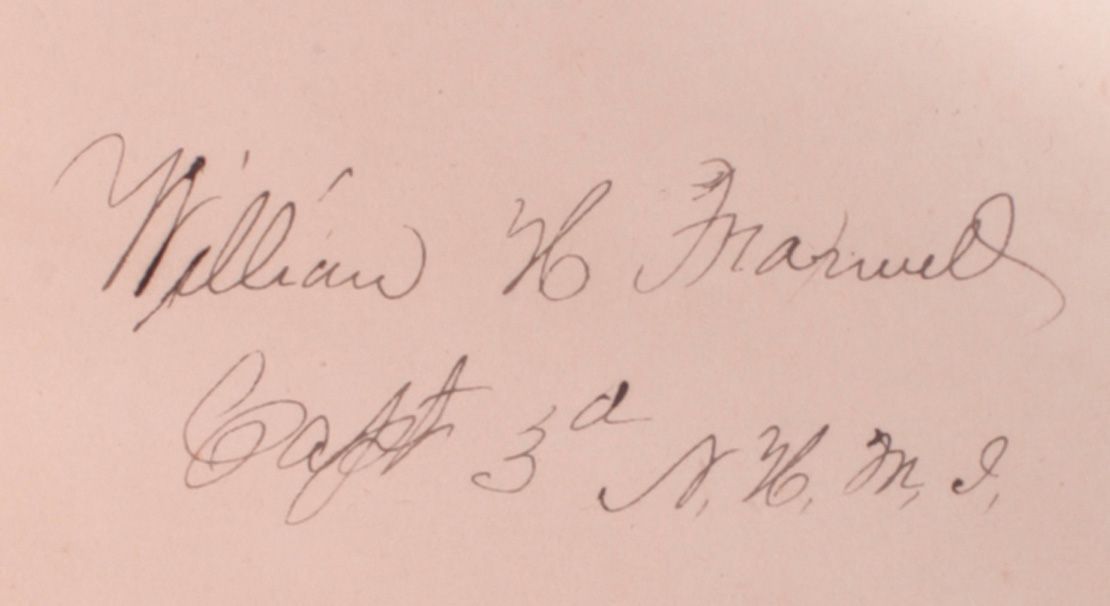 William H Maxwell
Capt 3d N. H. M. I.